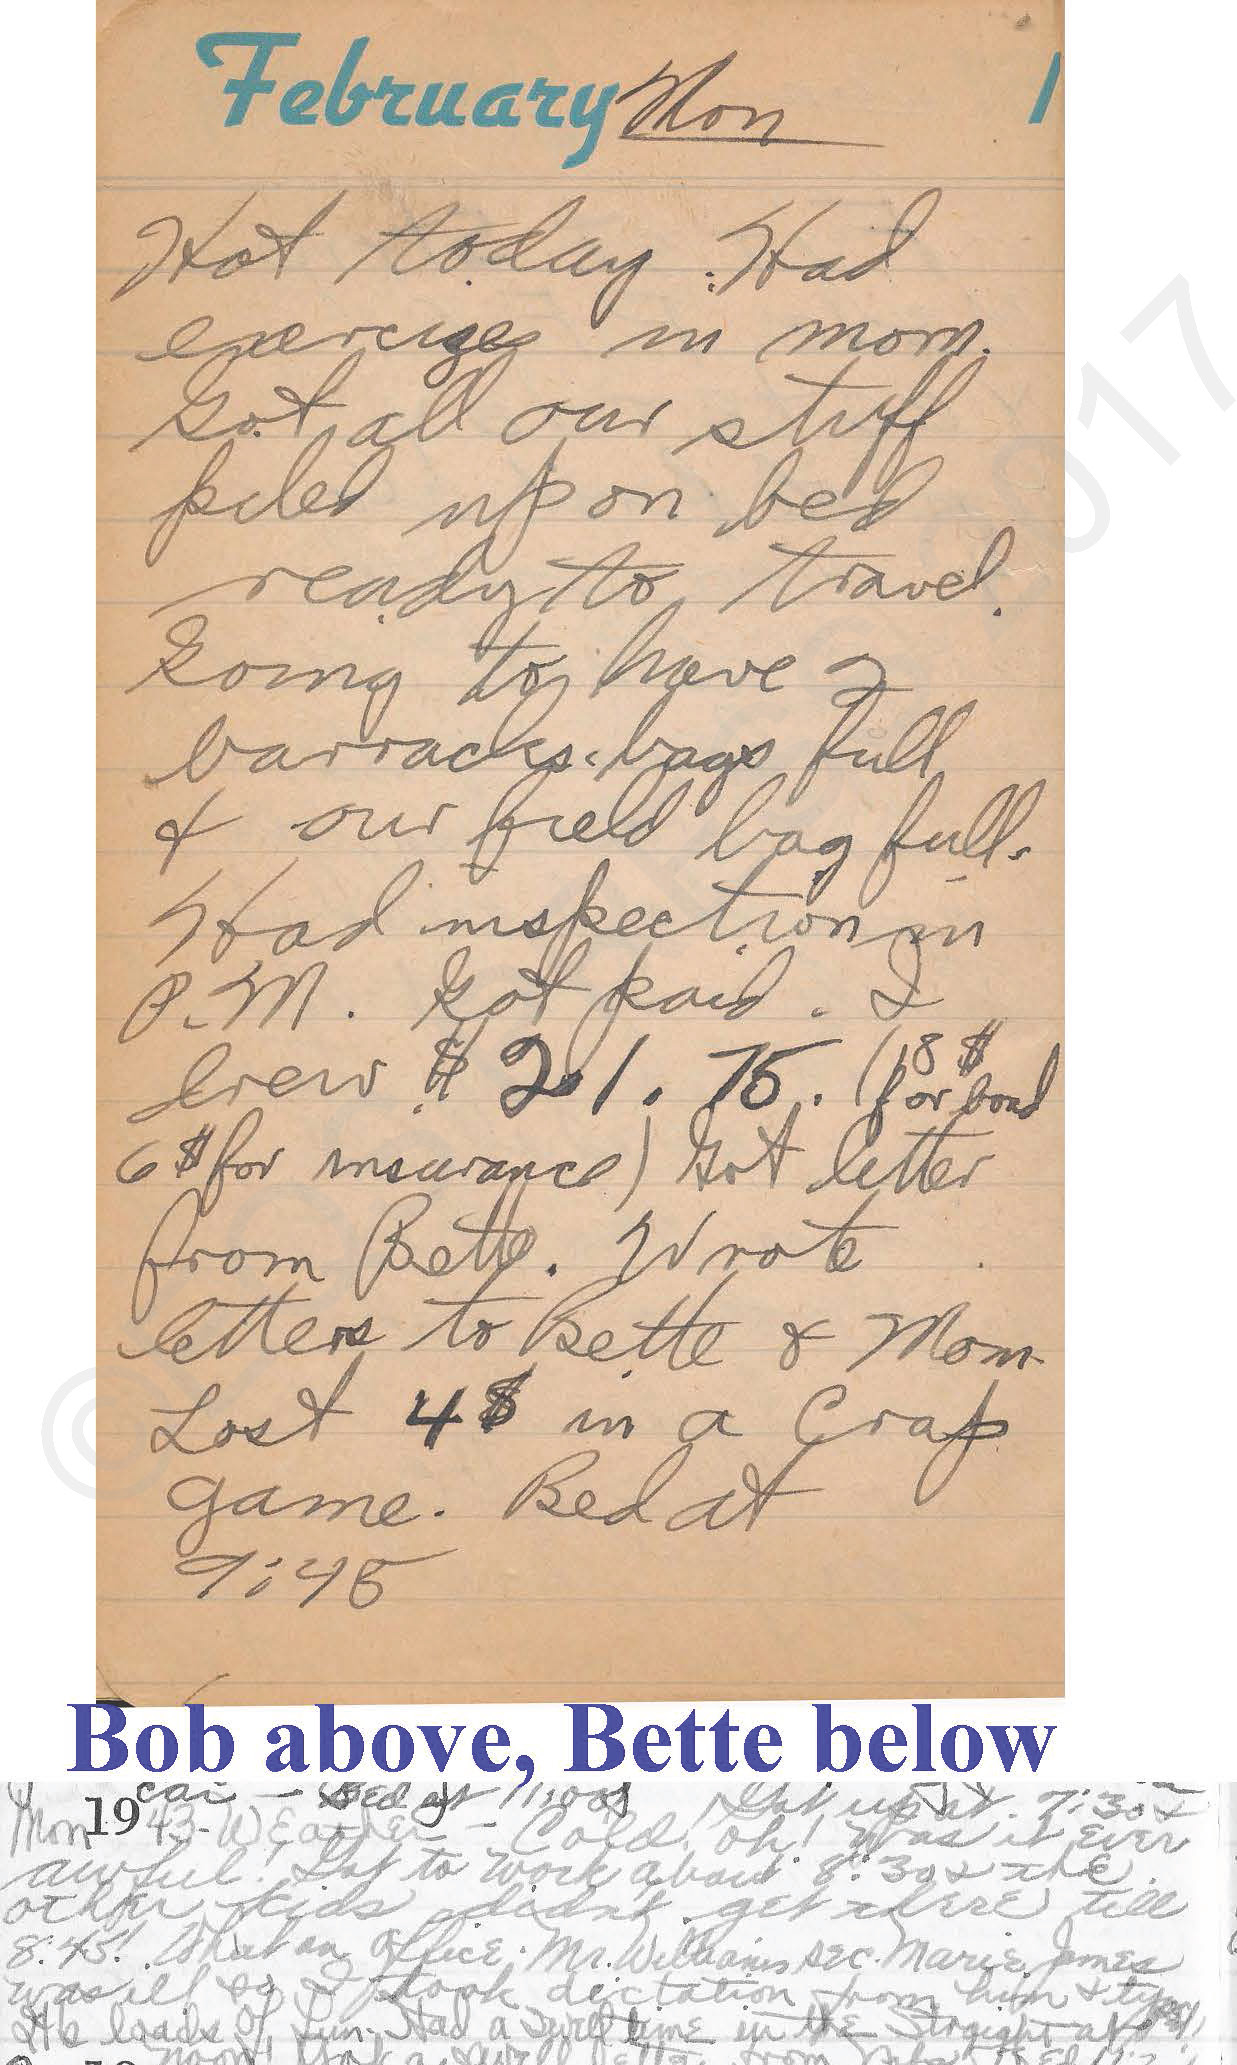 February Mon 1
Hot today. Had
exercises in morn.
Got all our stuff
piled up on bed
ready to travel.
Going to have 2
barracks bags full
& our field bag full.
Had inspection in
P.M. Got paid. I
drew $21.75. (18$
for bond
6$ for insurance) Got letter
from Bette. Wrote
letters to Bette & Mom
Lost 4$ in a Crap
game. Bed at
9:45
Bob above, Bette below
car - Bed at 11:00
Mon 1943 - Weather - Cold! Oh! Was it ever Got up at 7:30 &
awful! Got to work about 8:30 & the
other kids didn't get there till
8:45! What an office. Mr. Williams sec. Marie James
was ill so I took dictation from him &
loads of fun. Had a swell time in the
noon! Got a swell letter from
© 2017